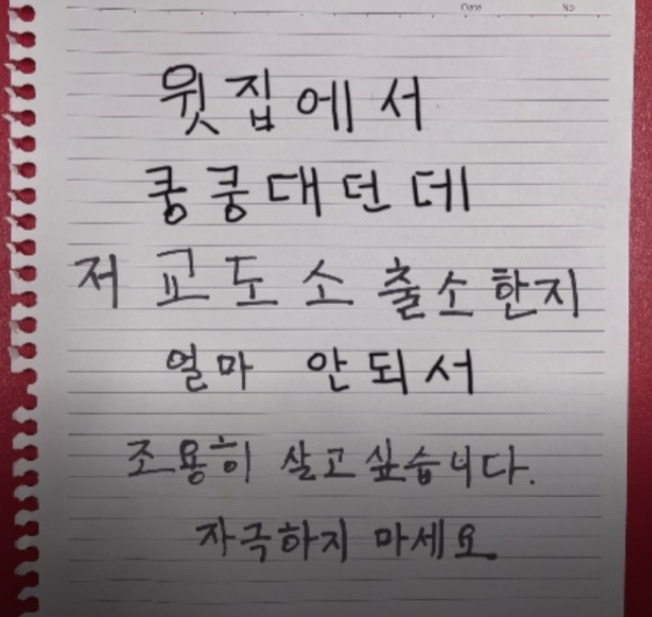 Date No
윗집에서
쿵쿵대던데
저 교도소 출소한지
얼마 안되서
조용히 살고싶습니다.
자극하지 마세요